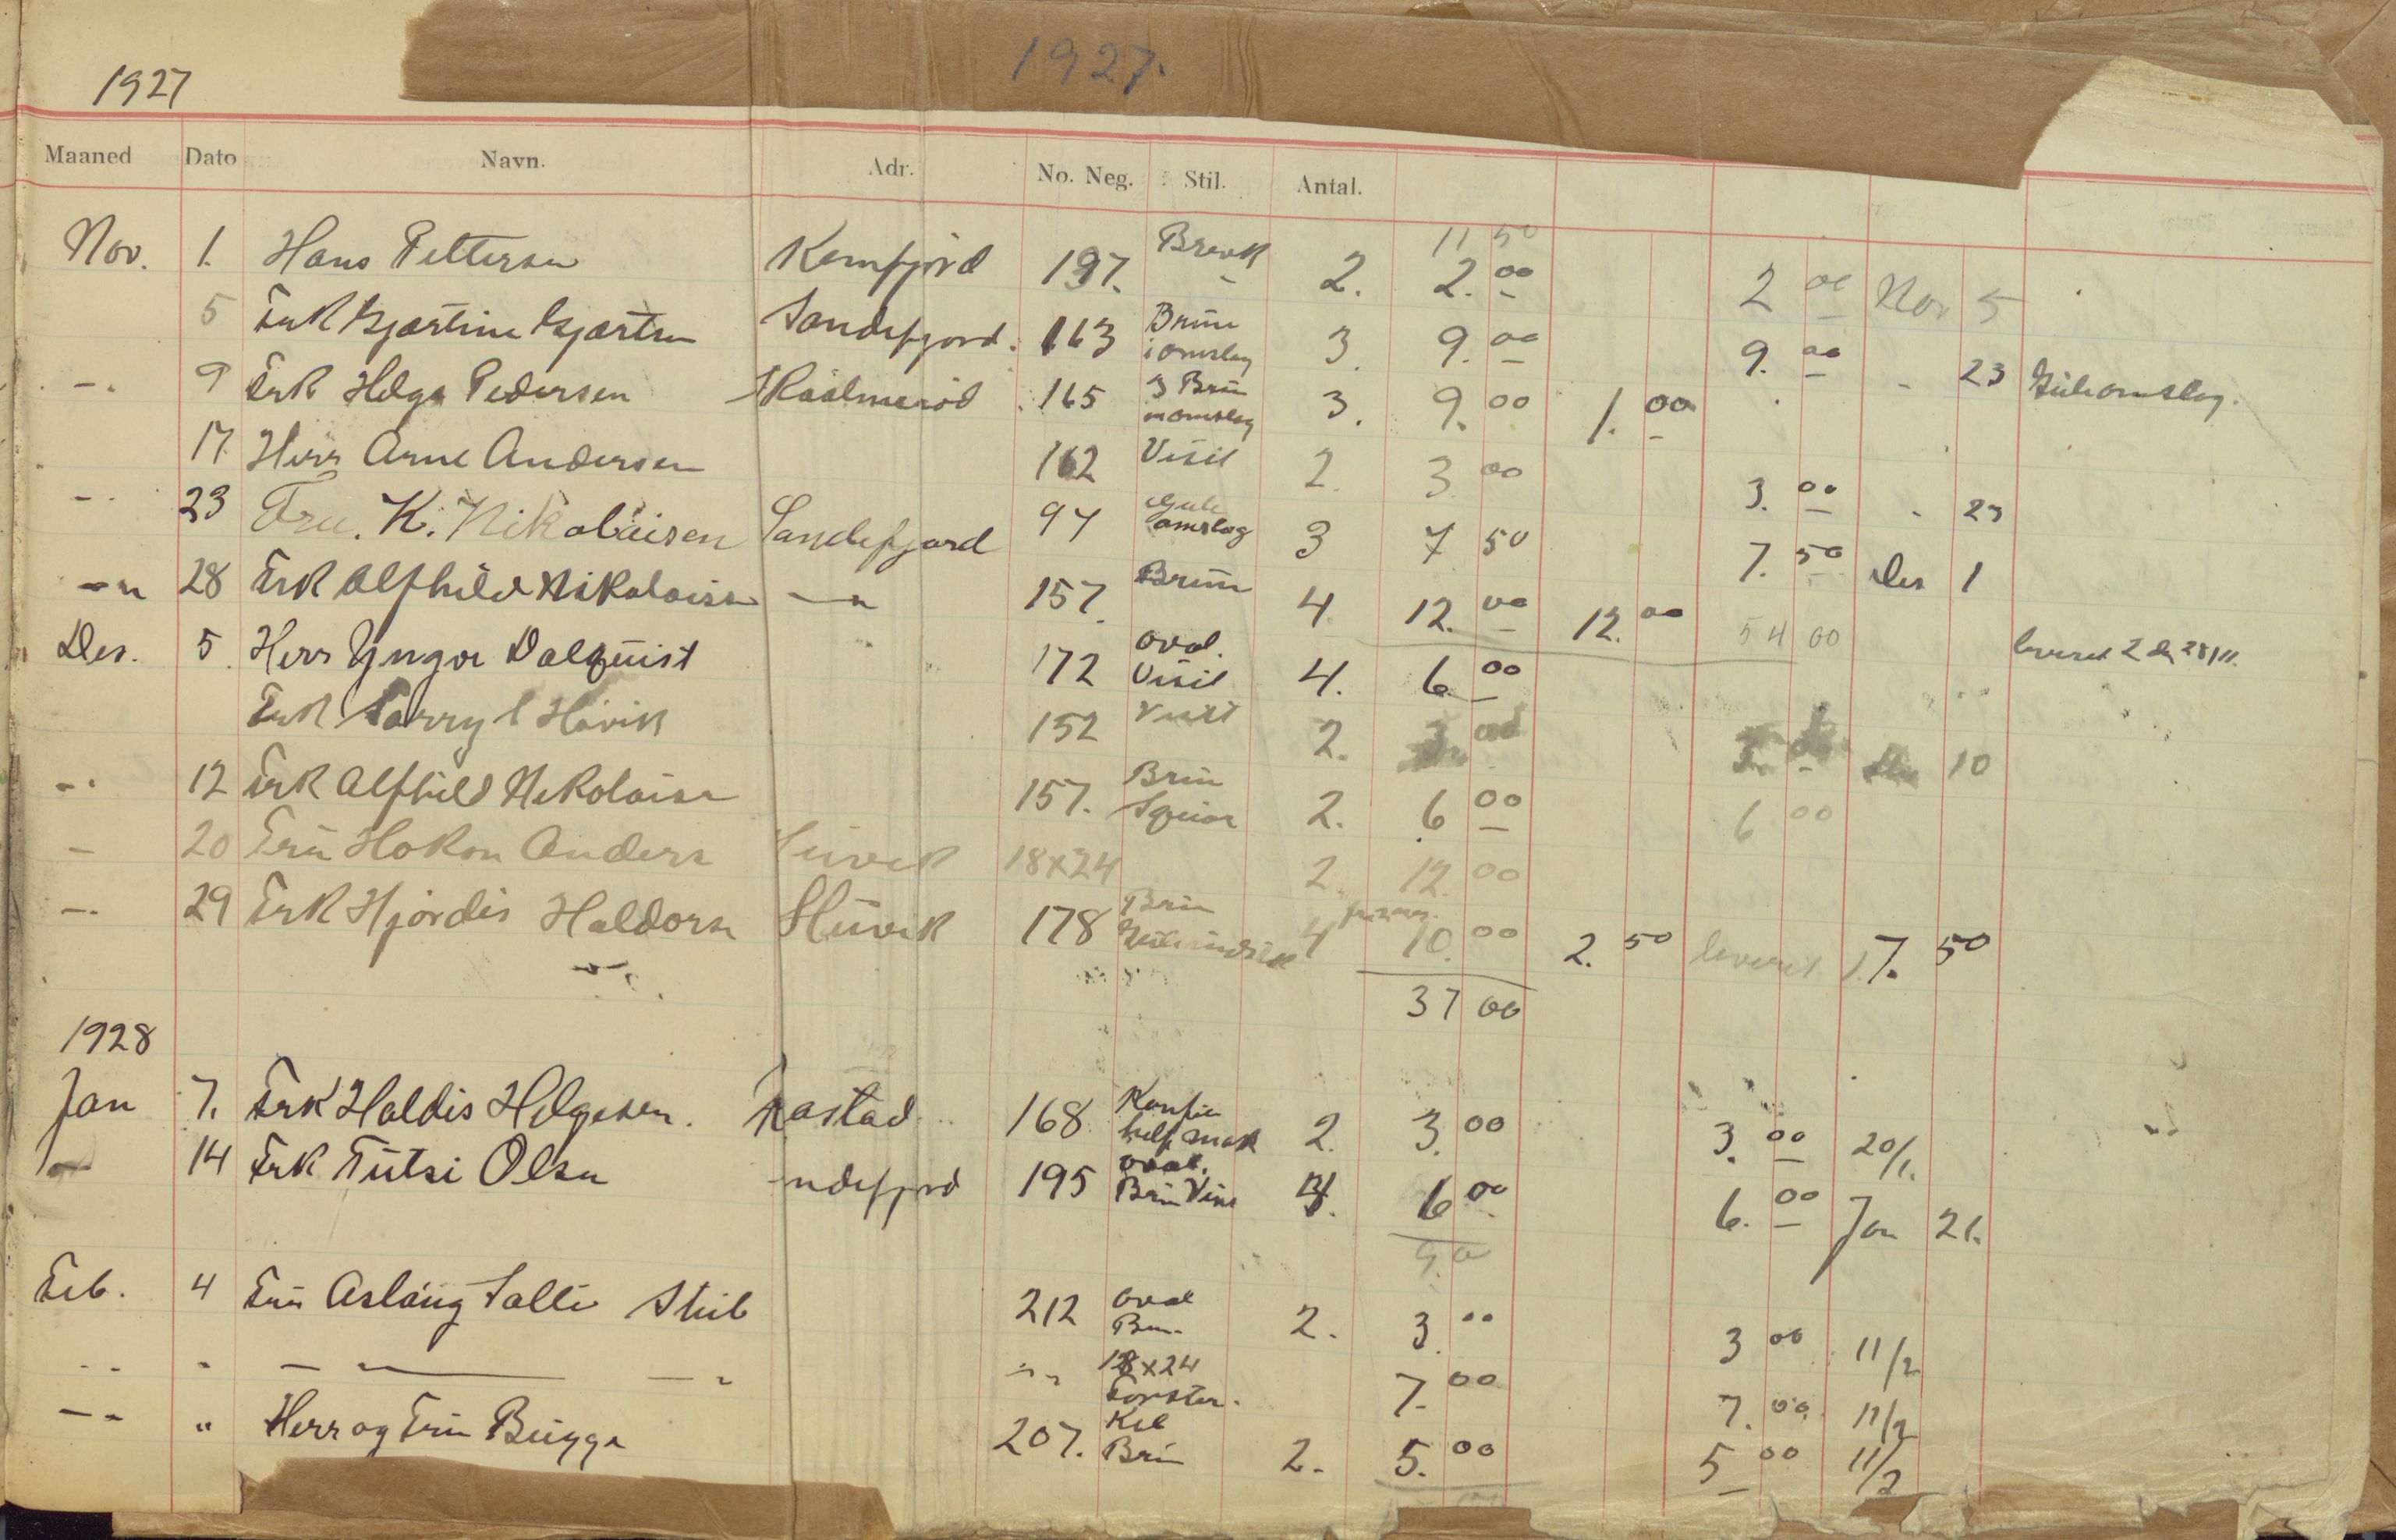 1927
1927.
Maaned Dato Navn. Adr. No. Neg. Stil. Antal.
11 50
Nov. 1. Hans Pettersen Kamfjord 197. Brevk 2. 2.00 2 00 Nov 5
5 Frk Hjertine Hjertsen Sandefjord. 163 Brun i omslag 3. 9.00 9.00 - 23 Guleomslag.
-. 9 Frk Helga Pedersen Skaalmeröd 165 3 Brun omslag 3. 9.00 1.00
17. Herr Arne Andersen 162 Visit 2. 3.00 3.00 - 23
-. 23 Fru. K. Nikolaisen Sandefjord 97 Gule omslag 3 7 50 7.50 Des 1
-"- 28 Frk Alfhild Nikolaisen -"- 157. Brun 4. 12.00 12.00 54 00
Des. 5. Herr Yngve Dalquist 172 oval. Visit 4. 6.00 leveret 2 den 28/11.
Frk Hövik 152 Visit 2. 3.00 3.00 Des 10
-. 12 Frk Alfhild Nikolaisen 157. Brun 2. 6.00 6 00
- 20 Fru Hokon Anders 18x24 2. 12.00
-. 29 Frk Hjördis Haldorsen 178 Brun 4 10.00 2.50 leveret 7.50
37 00
1928
Jan 7. Frk Haldis Helgesen. Rastad 168 Konfir 2. 3.00 3.00 20/1.
14 Frk Tutsi Olsen ndefjord 195 oval. Brun Visit 4. 6.00 6.00 Jan 21.
9.00
Feb. 4 Fru Aslaug Salte Stub 212 oval Brun 2. 3.00 3 00 11/2
-- " -"- -"- 18x24 Forster. 7.00 7.00 11/2
-- " Herr og Fru Bugge 207. Kab Brun 2. 5.00 5 00 11/2